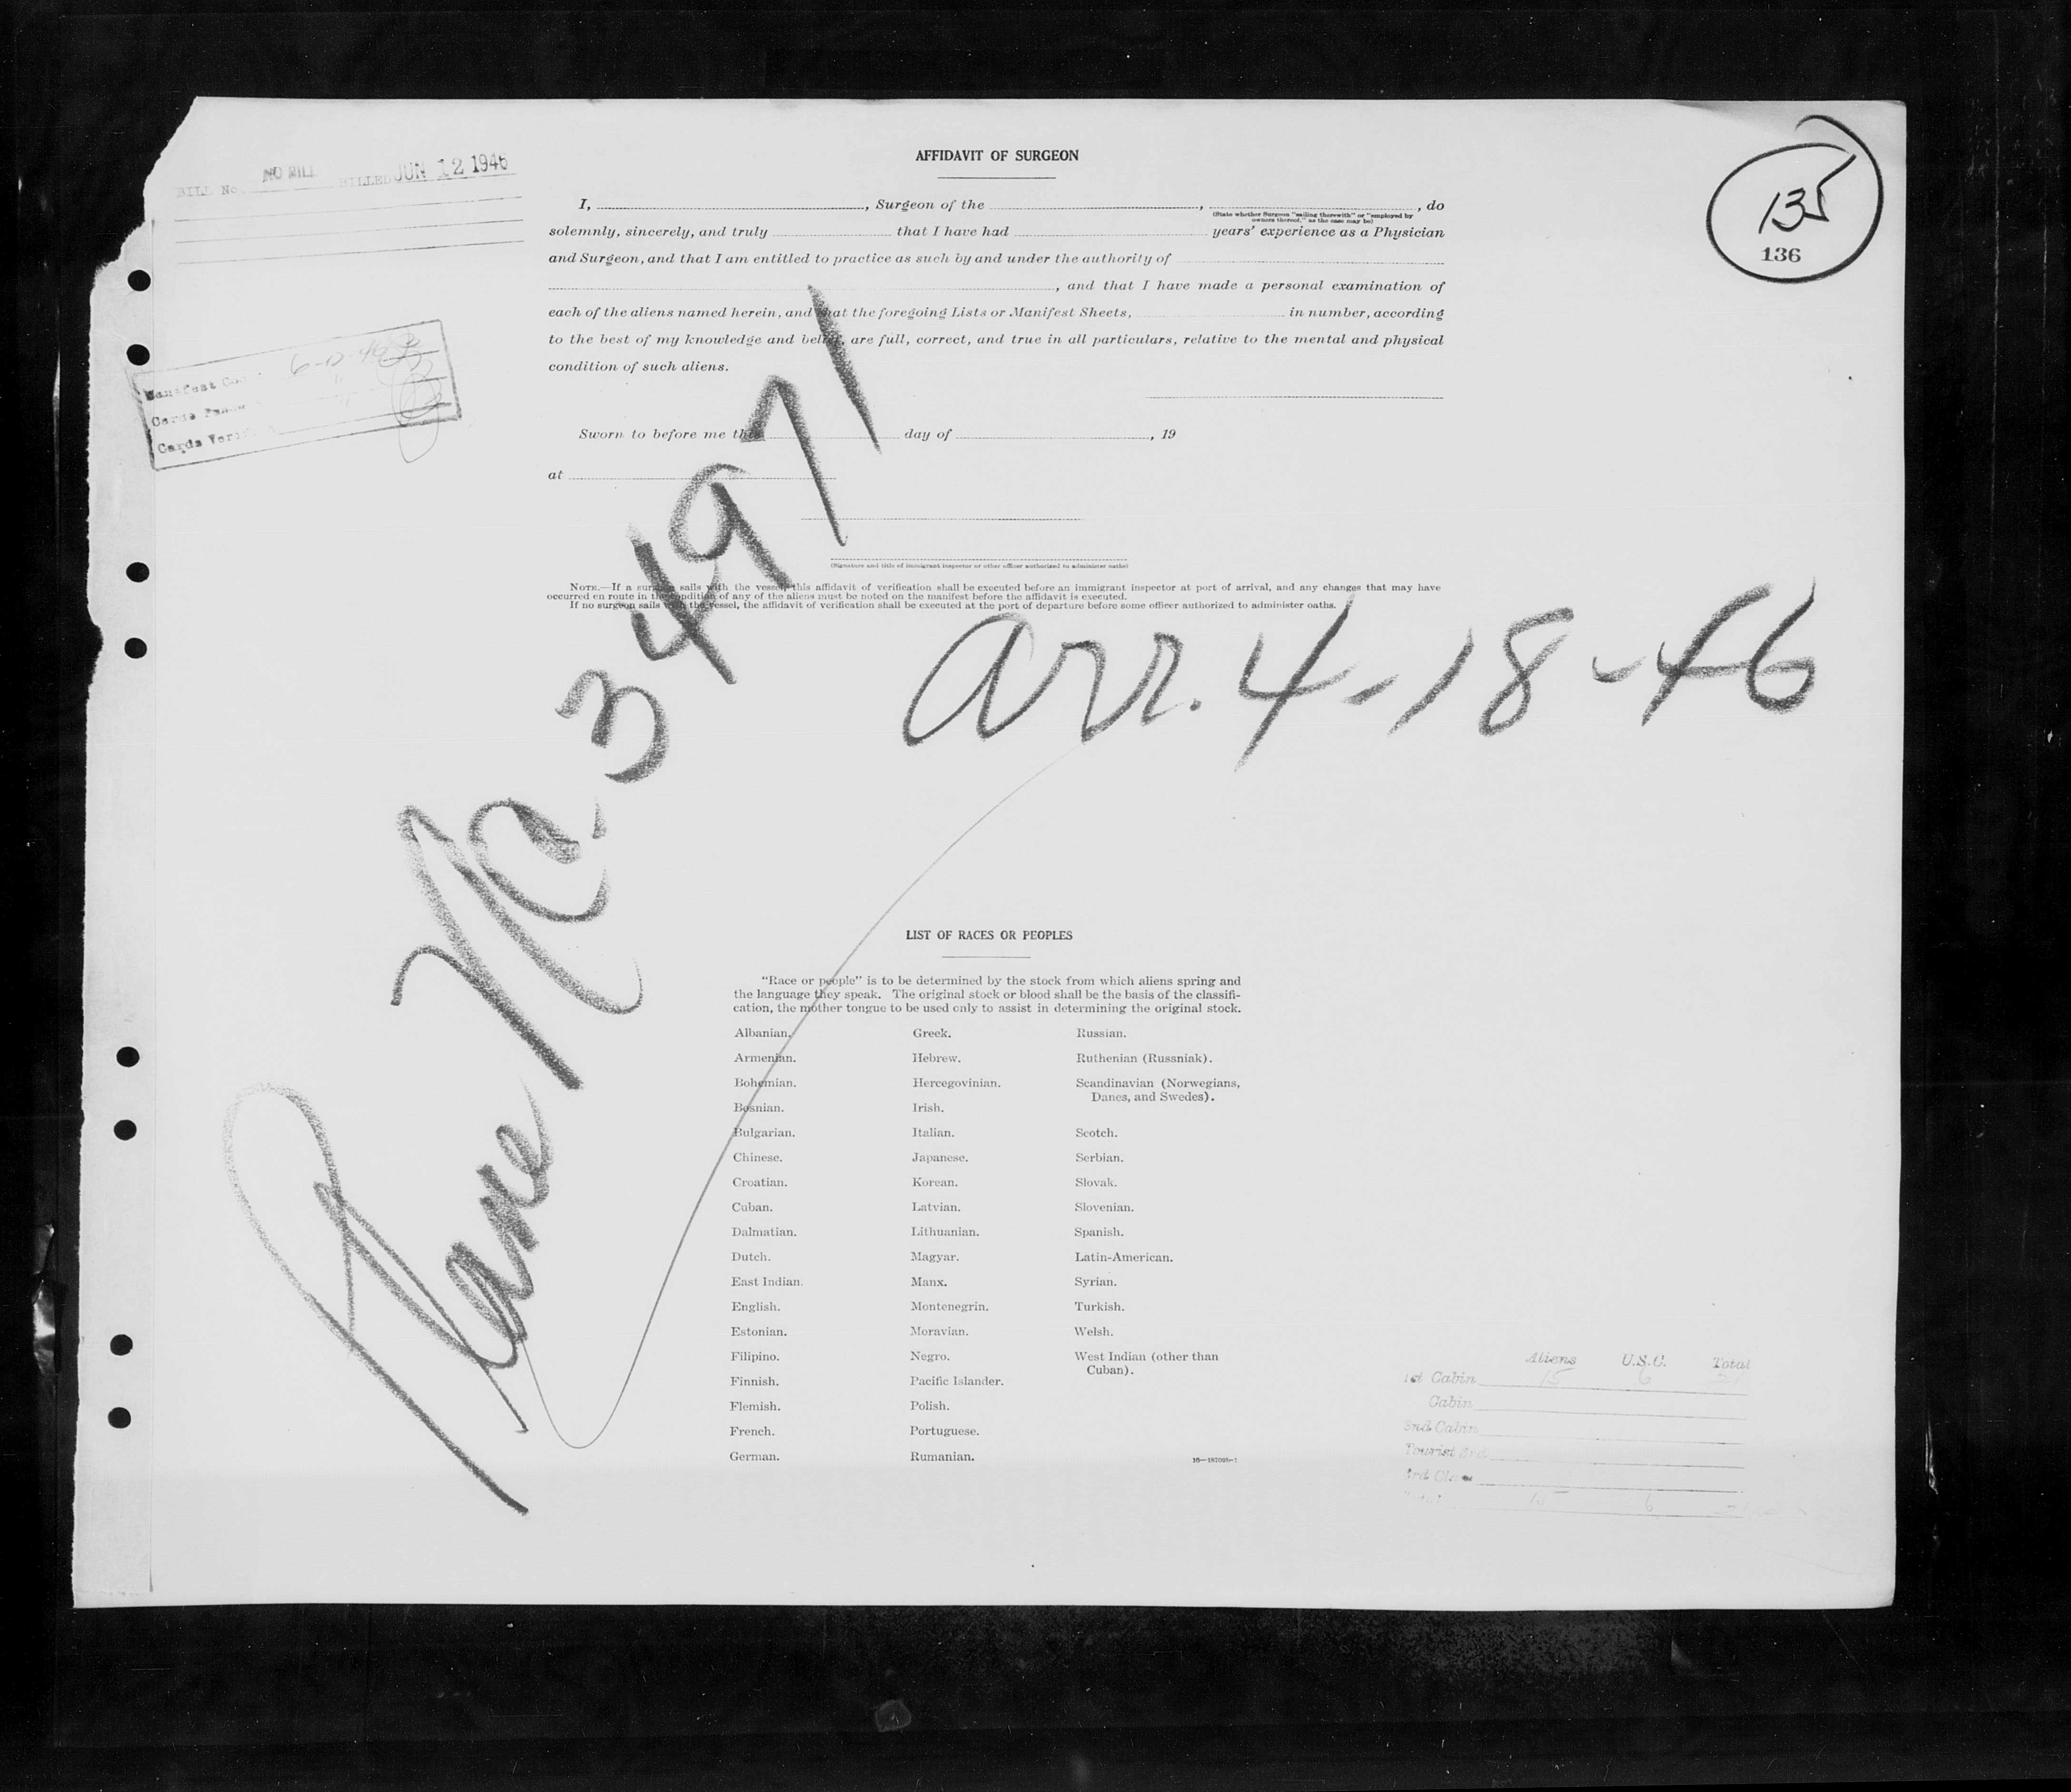 BILL No. NO BILL BILLED JUN 12 1946
AFFIDAVIT OF SURGEON
135
136
I, , Surgeon of the , , do
(State whether Surgeon "sailing therewith" or "employed by
owners thereof," as the case may be)
solemnly, sincerely, and truly that I have had years' experience as a Physician
and Surgeon, and that I am entitled to practice as such by and under the authority of
, and that I have made a personal examination of
each of the aliens named herein, and that the foregoing Lists or Manifest Sheets, in number, according
to the best of my knowledge and belief, are full, correct, and true in all particulars, relative to the mental and physical
condition of such aliens.
Manifest
Cards
Cards
Sworn to before me this day of , 19
at
(Signature and title of immigrant inspector or other officer authorized to administer oaths)
NOTE.—If a surgeon sails with the vessel, this affidavit of verification shall be executed before an immigrant inspector at port of arrival, and any changes that may have
occurred en route in the condition of any of the aliens must be noted on the manifest before the affidavit is executed.
If no surgeon sails with the vessel, the affidavit of verification shall be executed at the port of departure before some officer authorized to administer oaths.
Plane NC. 34971
arr. 4-18-46
LIST OF RACES OR PEOPLES
"Race or people" is to be determined by the stock from which aliens spring and
the language they speak. The original stock or blood shall be the basis of the classifi-
cation, the mother tongue to be used only to assist in determining the original stock.
Albanian.
Armenian.
Bohemian.
Bosnian.
Bulgarian.
Chinese.
Croatian.
Cuban.
Dalmatian.
Dutch.
East Indian.
English.
Estonian.
Filipino.
Finnish.
Flemish.
French.
German.
Greek.
Hebrew.
Hercegovinian.
Irish.
Italian.
Japanese.
Korean.
Latvian.
Lithuanian.
Magyar.
Manx.
Montenegrin.
Moravian.
Negro.
Pacific Islander.
Polish.
Portuguese.
Rumanian.
Russian.
Ruthenian (Russniak).
Scandinavian (Norwegians,
Danes, and Swedes).
Scotch.
Serbian.
Slovak.
Slovenian.
Spanish.
Latin-American.
Syrian.
Turkish.
Welsh.
West Indian (other than
Cuban).
Aliens U.S.C. Total
1st Cabin 15 6 21
Cabin
2nd Cabin
Tourist 3rd
3rd Class
Total 15 6 21